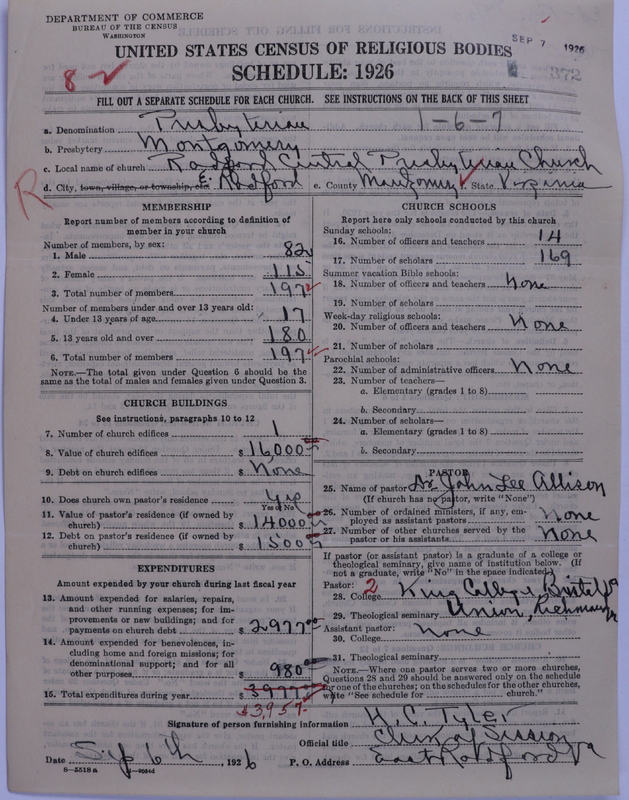 DEPARTMENT OF COMMERCE
BUREAU OF THE CENSUS
WASHINGTON
SEP 7 1926
UNITED STATES CENSUS OF RELIGIOUS BODIES
372
8
SCHEDULE: 1926
FILL OUT A SEPARATE SCHEDULE FOR EACH CHURCH. SEE INSTRUCTIONS ON THE BACK OF THIS SHEET
a. Denomination Presbyterian 1-6-7
b. Presbytery Montgomery
c. Local name of church Radford Central Presbyterian Church
d. City, town, village, or township, etc. E. Radford e. County Montgomery State Virginia
R
MEMBERSHIP
Report number of members according to definition of
member in your church
Number of members, by sex:
1. Male 82
2. Female 115
3. Total number of members 197
Number of members under and over 13 years old:
4. Under 13 years of age 17
5. 13 years old and over 180
6. Total number of members 197
NOTE.—The total given under Question 6 should be the
same as the total of males and females given under Question 3.
CHURCH BUILDINGS
See instructions, paragraphs 10 to 12
7. Number of church edifices 1
8. Value of church edifices $ 16,000
9. Debt on church edifices $ None
10. Does church own pastor's residence Yes
Yes or No
11. Value of pastor's residence (if owned by
church) $ 14000
12. Debt on pastor's residence (if owned by
church) $ 1500
EXPENDITURES
Amount expended by your church during last fiscal year
13. Amount expended for salaries, repairs,
and other running expenses; for im-
provements or new buildings; and for
payments on church debt $ 2977.00
14. Amount expended for benevolences, in-
cluding home and foreign missions; for
denominational support; and for all
other purposes $ 980
15. Total expenditures during year $ 3977
$3,957
CHURCH SCHOOLS
Report here only schools conducted by this church
Sunday schools:
16. Number of officers and teachers 14
17. Number of scholars 169
Summer vacation Bible schools:
18. Number of officers and teachers None
19. Number of scholars
Week-day religious schools:
20. Number of officers and teachers None
21. Number of scholars
Parochial schools:
22. Number of administrative officers None
23. Number of teachers—
a. Elementary (grades 1 to 8)
b. Secondary
24. Number of scholars—
a. Elementary (grades 1 to 8)
b. Secondary
PASTOR
25. Name of pastor Dr. John Lee Allison
(If church has no pastor, write "None")
26. Number of ordained ministers, if any, em-
ployed as assistant pastors None
27. Number of other churches served by the
pastor or his assistants None
If pastor (or assistant pastor) is a graduate of a college or
theological seminary, give name of institution below. (If
not a graduate, write "No" in the space indicated.)
Pastor: 2
28. College King College, Bristol
29. Theological seminary Union, Richmond
Assistant pastor: None
30. College
31. Theological seminary
NOTE.—Where one pastor serves two or more churches,
Questions 28 and 29 should be answered only on the schedule
for one of the churches; on the schedules for the other churches,
write "See schedule for church."
Signature of person furnishing information H. C. Tyler
Official title Clerk of Session
Date Sep 6th, 1926 P. O. Address East Radford Va
8—5518 a